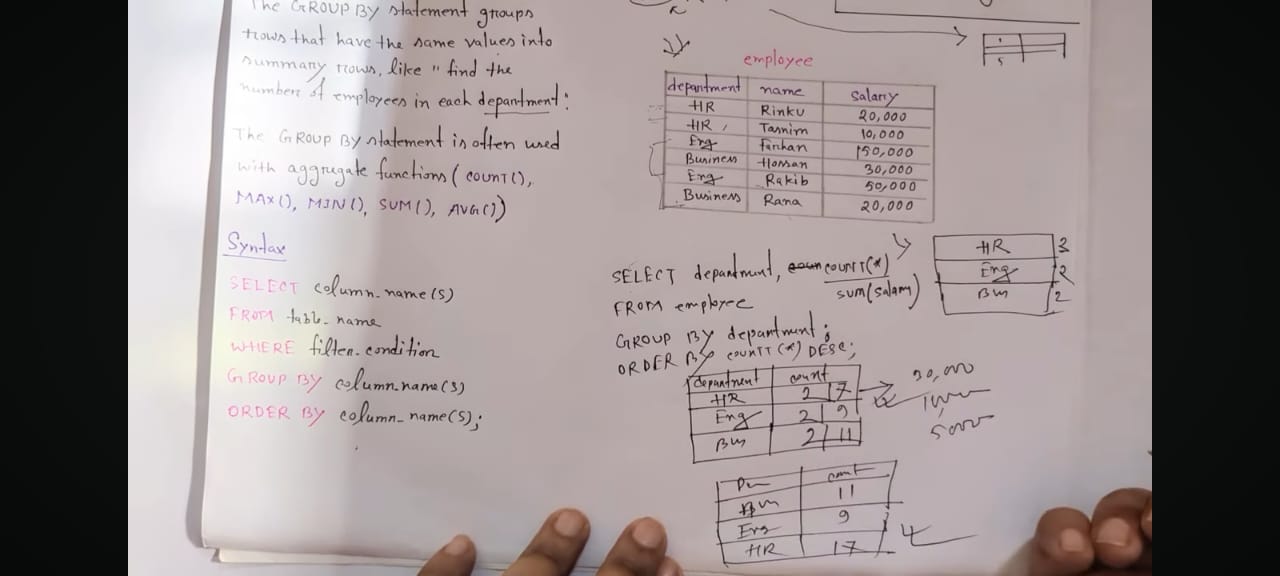 The GROUP BY statement groups
rows that have the same values into
summary rows, like "find the
number of employees in each department:
The GROUP BY statement is often used
with aggregate functions (COUNT(),
MAX(), MIN(), SUM(), AVG())
Syntax
SELECT column_name(s)
FROM table_name
WHERE filter_condition
GROUP BY column_name(s)
ORDER BY column_name(s);
employee
department name salary
HR Rinku 20,000
HR Tasnim 10,000
Eng Farhan 150,000
Business Hossan 30,000
Eng Rakib 50,000
Business Rana 20,000
HR 3
Eng 2
Bus 2
SELECT department, COUNTT(*)
sum(salary)
FROM employee
GROUP BY department;
ORDER BY COUNTT(*) DESC;
department count
HR 2 17
Eng 2 9
Bus 2 11
30,000
count
Bus 11
Eng 9
HR 17